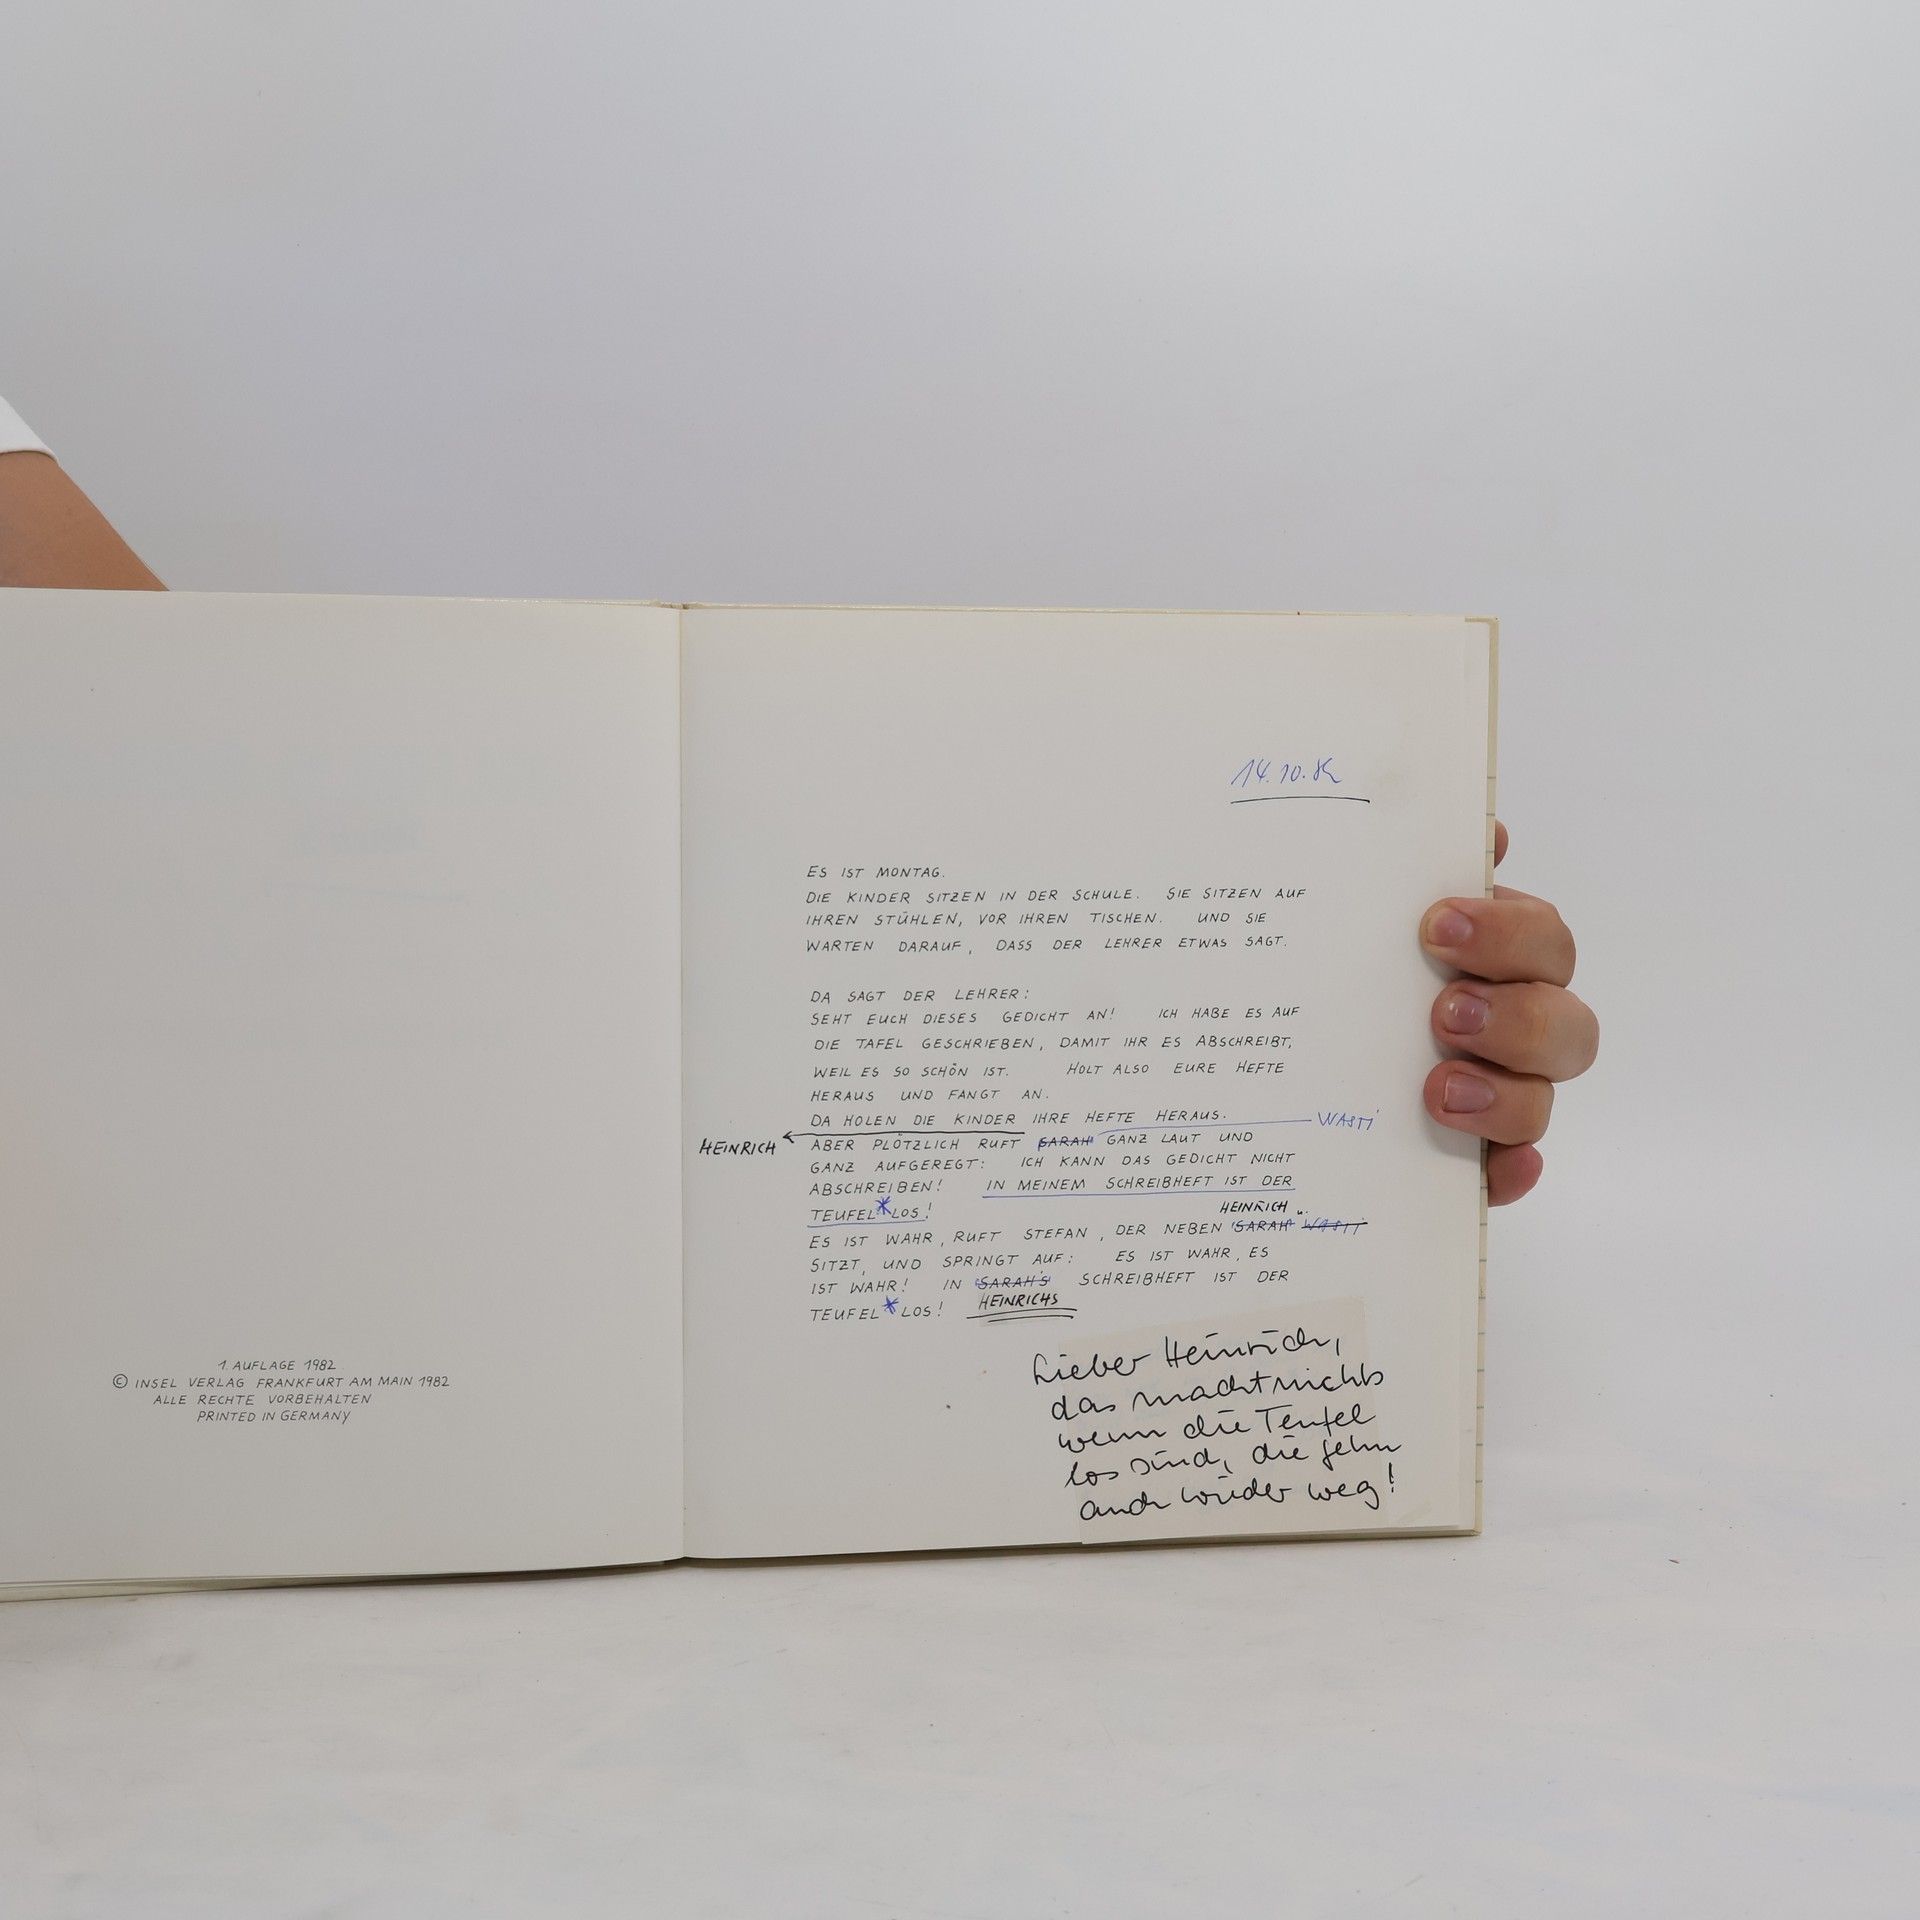 1. AUFLAGE 1982
© INSEL VERLAG FRANKFURT AM MAIN 1982
ALLE RECHTE VORBEHALTEN
PRINTED IN GERMANY
14.10.82
ES IST MONTAG.
DIE KINDER SITZEN IN DER SCHULE. SIE SITZEN AUF
IHREN STÜHLEN, VOR IHREN TISCHEN. UND SIE
WARTEN DARAUF, DASS DER LEHRER ETWAS SAGT.
DA SAGT DER LEHRER:
SEHT EUCH DIESES GEDICHT AN! ICH HABE ES AUF
DIE TAFEL GESCHRIEBEN, DAMIT IHR ES ABSCHREIBT,
WEIL ES SO SCHÖN IST. HOLT ALSO EURE HEFTE
HERAUS UND FANGT AN.
DA HOLEN DIE KINDER IHRE HEFTE HERAUS. WASTI
HEINRICH ABER PLÖTZLICH RUFT SARAH GANZ LAUT UND
GANZ AUFGEREGT: ICH KANN DAS GEDICHT NICHT
ABSCHREIBEN! IN MEINEM SCHREIBHEFT IST DER
TEUFEL*LOS!
HEINRICH
ES IST WAHR, RUFT STEFAN, DER NEBEN SARAH WASTI
SITZT, UND SPRINGT AUF: ES IST WAHR, ES
IST WAHR! IN SARAH'S SCHREIBHEFT IST DER
TEUFEL*LOS! HEINRICHS
Lieber Heinrich,
das macht nichts
wenn die Teufel
los sind, die gehn
auch wieder weg!